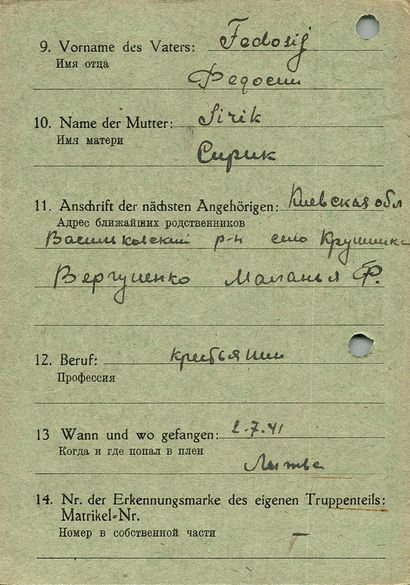 9. Vorname des Vaters: Fedosij
Имя отца
Федосий
10. Name der Mutter: Sirik
Имя матери
Сирик
11. Anschrift der nächsten Angehörigen: Киевская обл
Адрес ближайших родственников
Васильковский р-н село Крушинка
Вергуненко Маланья Ф.
12. Beruf: крестьянин
Профессия
13 Wann und wo gefangen: 2.7.41
Когда и где попал в плен
Литва
14. Nr. der Erkennungsmarke des eigenen Truppenteils:
Matrikel-Nr.
Номер в собственной части –